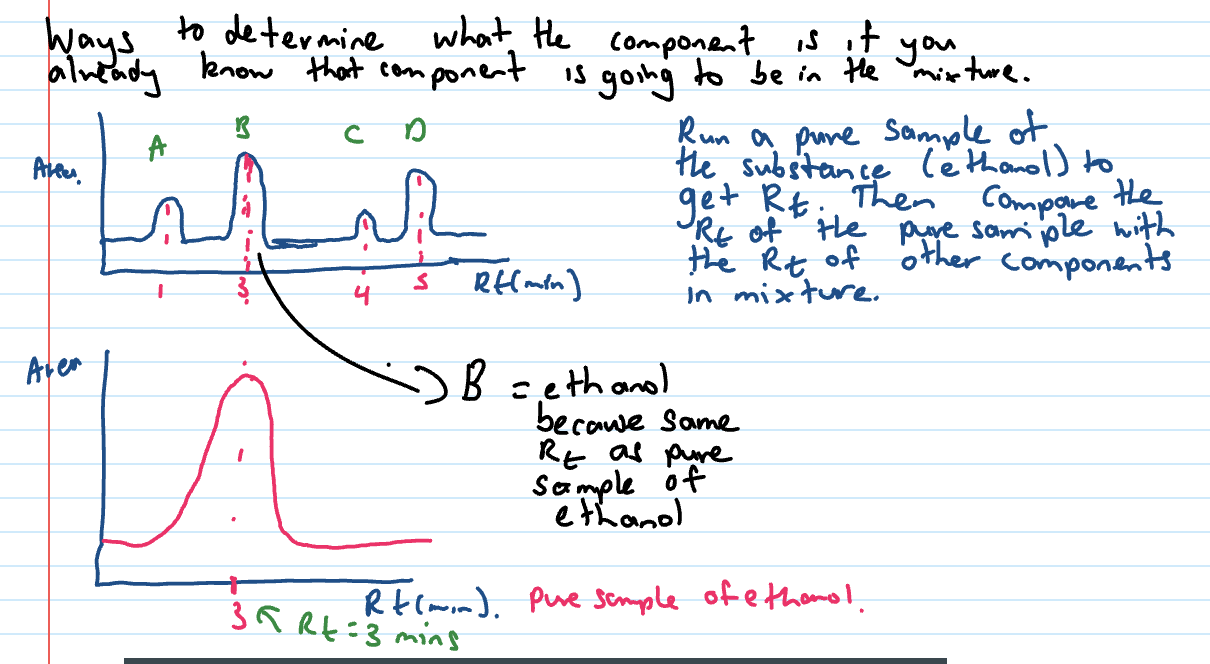 Ways to determine what the component is if you
already know that component is going to be in the mixture.
A B C D
Area.
1 3 4 5 Rt(min)
Run a pure sample of
the substance (ethanol) to
get Rt. Then compare the
Rt of the pure sample with
the Rt of other components
in mixture.
Area
B = ethanol
because same
Rt as pure
sample of
ethanol
3 Rt(min). pure sample of ethanol.
Rt = 3 mins